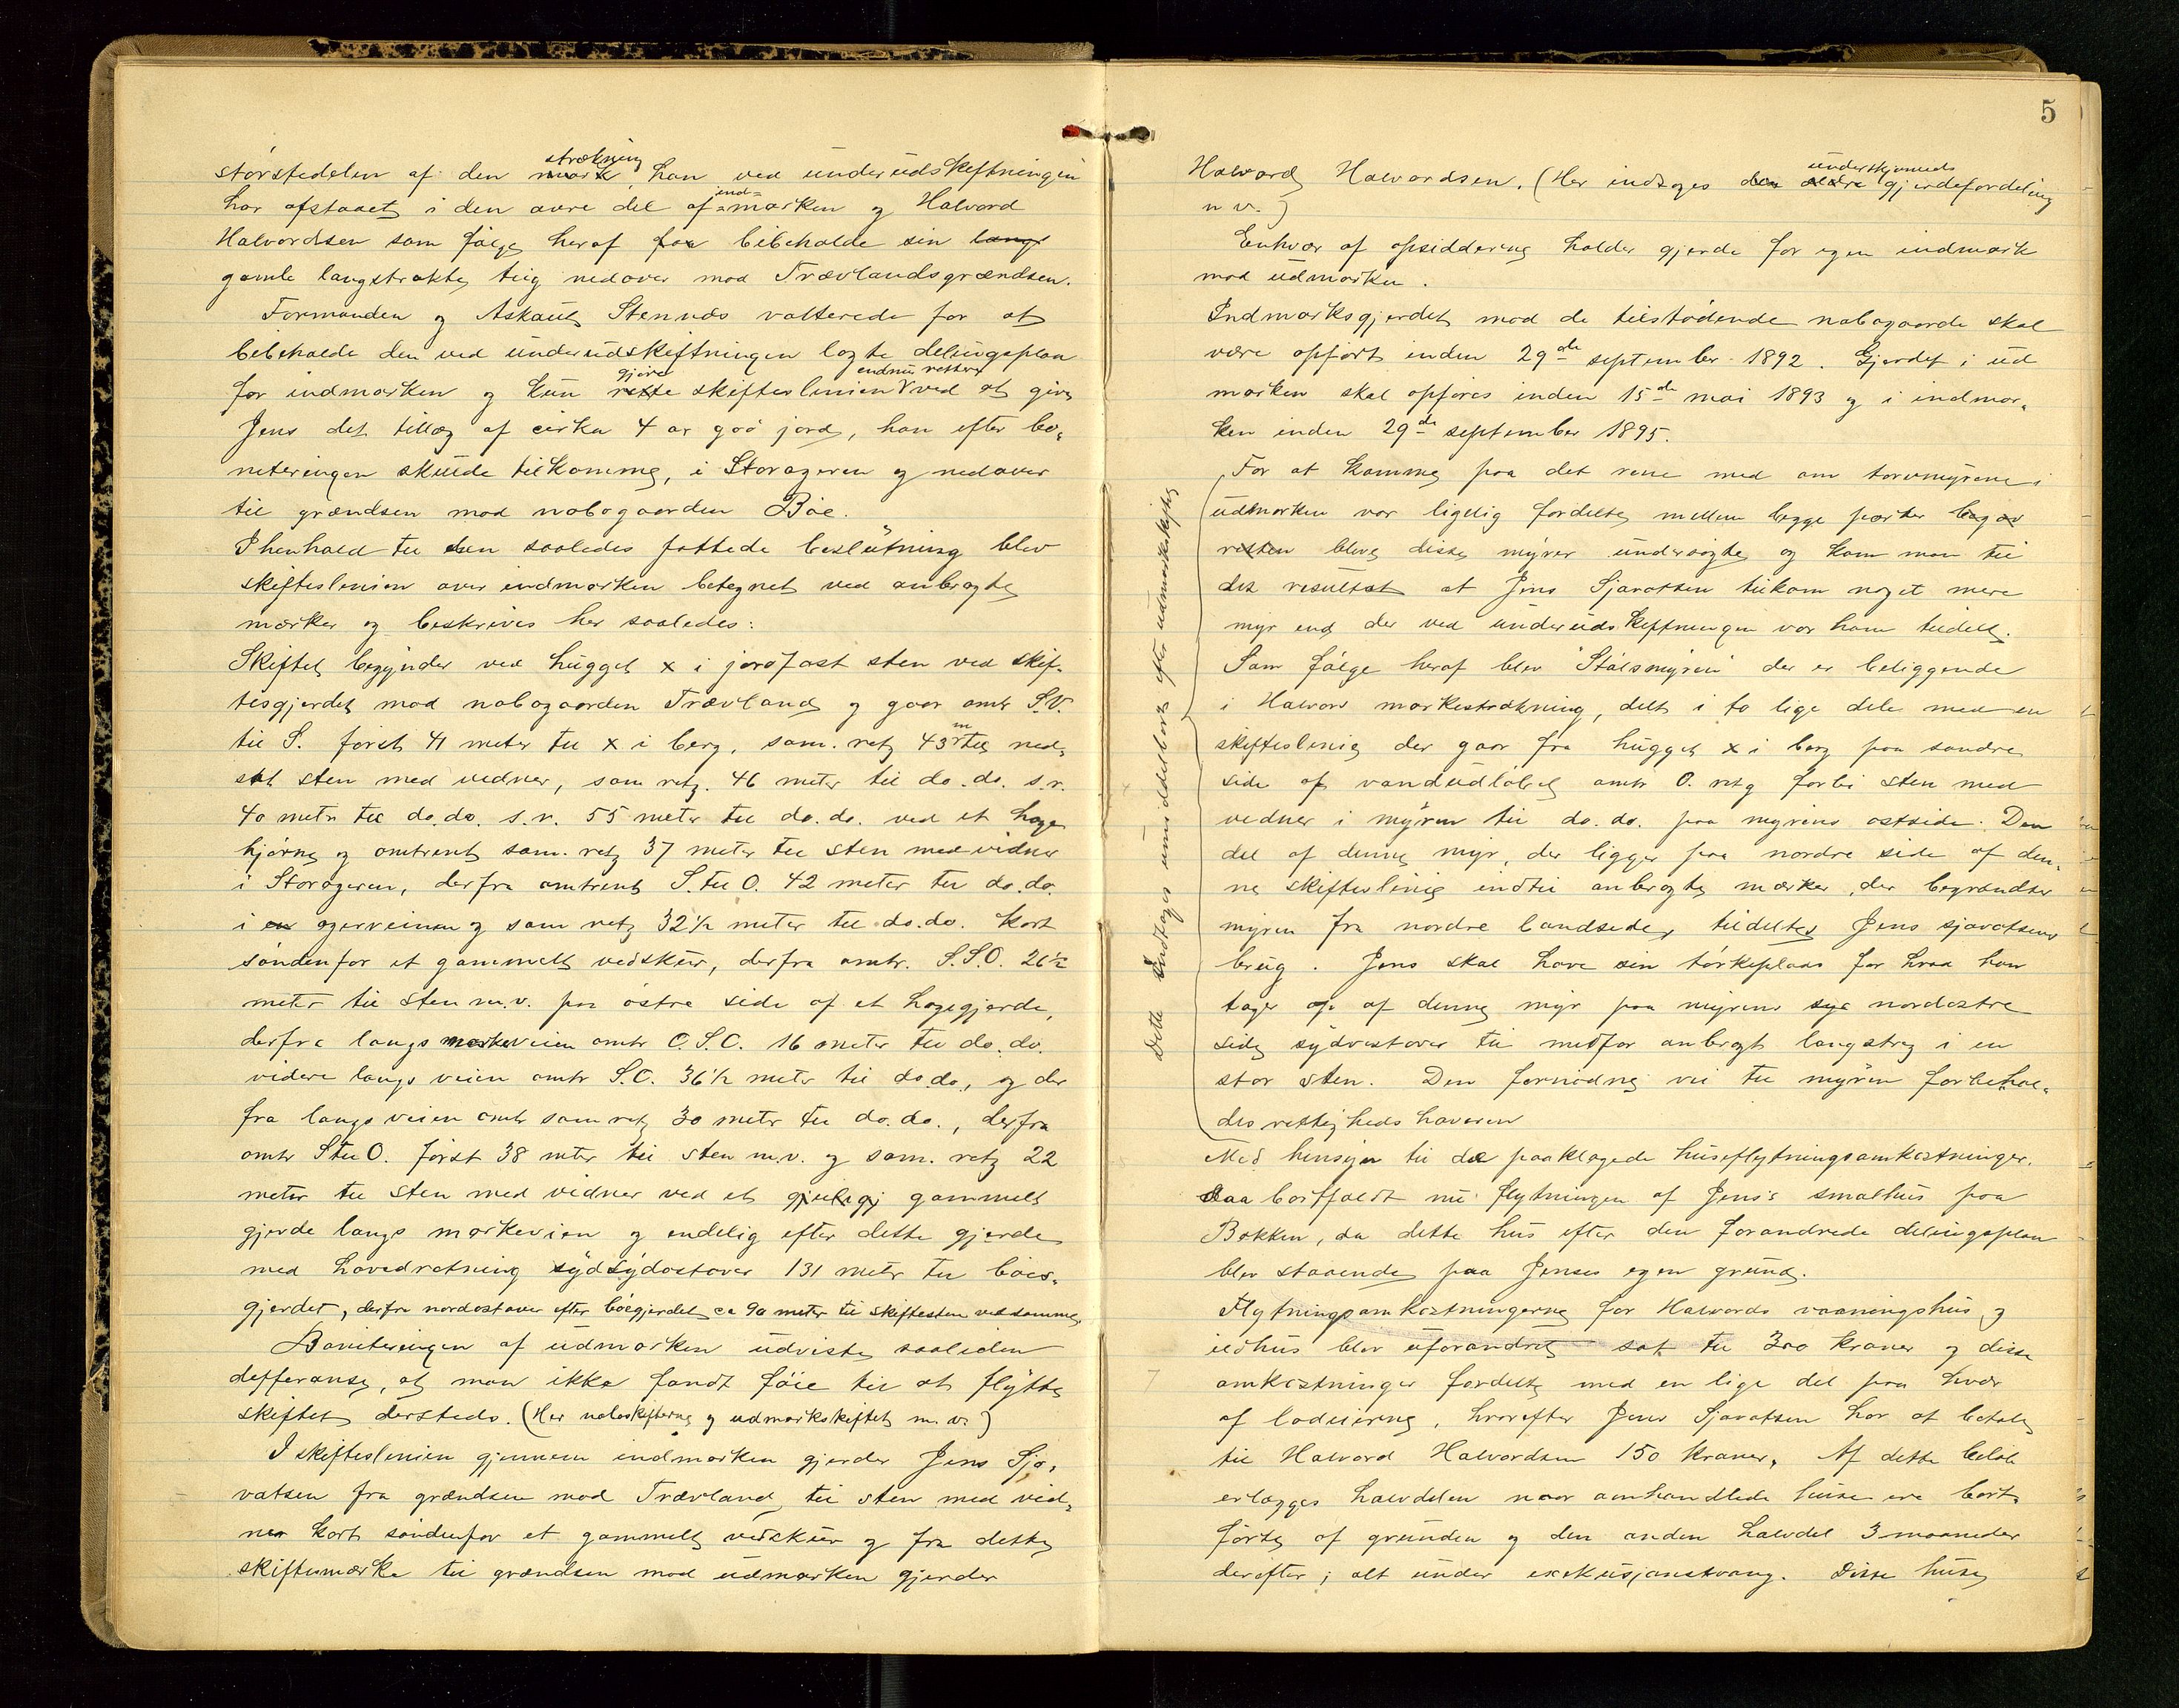 störstedelen af den strækning han ved underudskiftningen
har afstaaet i den øvre del af indmarken og Halvord
Halvordsen som følge heraf faa bibeholde sin langt
gamle langstrakte teig nedover mod Trævlandsgrændsen.
Formanden og Askaut Stennæs votterede for at
bibeholde den ved underudskiftningen lagte delingsplan
for indmarken og kun gjøre skifteslinien endnu rettere ved at give
Jens det tillæg af cirka 4 ar god jord, han efter bo-
neteringen skulde tilkomme, i Storageren og nedover
til grændsen mod nabogaarden Böe.
I henhold til den saaledes fattede beslutning blev
skifteslinien over indmarken betegnet ved anbragte
mærker og beskrives her saaledes:
Skiftet begynder ved hugget x i jordfast sten ved skif-
tesgjerdet mod nabogaarden Trævland og gaar omtr S.V.
til S. först 41 meter til x i berg, sam. retg 43 m til ned-
sat sten med vidner, sam retg. 46 meter til do. do. s.r.
40 metr til do. do. s.r. 55 meter til do. do. ved et hage
hjörne og omtrent sam. retg 37 meter til sten med vidner
i Storageren, derfra omtrent S. til O. 42 meter til do. do.
i en agerreinen og sam retg 32 1/2 meter til do. do. kort
söndenfor et gammelt vedskur, derfra omtr. S.S.O. 26 1/2
meter til sten m.v. paa östre side af et hagegjerde,
derfra langs markeveien omtr O.S.O. 16 meter til do. do.
videre langs veien omtr S.O. 36 1/2 meter til do. do., og der
fra langs veien omtr sam retg 30 metr til do. do., derfra
omtr S til O. först 38 meter til sten m.v. og sam. retg 22
meter til sten med vidner ved et gammelt
gjerde langs markeveien og endelig efter dette gjerde
med hovedretning sydsydostover 131 metr til böes-
gjerdet, derfra nordostover efter böegjerdet ca 90 meter til skiftesten ved samme.
Boniteringen af udmarken udviste saaliden
defferanse, at man ikke fandt föie til at flytte
skiftet dersteds. (Her naboskifterne og udmarkskiftet m. v.)
I skifteslinien gjennem indmarken gjerder Jens Sja-
vatsen fra grændsen mod Trævland til sten med vid-
ner kort söndenfor et gammelt vedskur og fra dette
skiftesmærke til grændsen mod udmarken gjerder
5
Halvord Halvordsen. (Her indtages den underskjønneds gjerdefordeling
n v.)
Enhver af opsidderne holder gjerde for egen indmark
mod udmarken.
Indmarksgjerdet mod de tilstödende nabogaarde skal
være opfört inden 29de september 1892. Gjerdet i ud
marken skal opföres inden 15de mai 1893 og i indmar-
ken inden 29de september 1895.
For at komme paa det rene med om torvmyrene i
udmarken var ligelig fordelte mellem begge parter
blev disse myrer undersögte og kom man til
det resultat at Jens Sjavatsen tilkom noget mere
myr end der ved underudskiftningen var ham tildelt.
Som fölge heraf blev "Stölsmyren" der er beliggende
i Halvors markestrækning, delt i to lige dele med en
skifteslinie der gaar fra hugget x i berg paa söndre
side af vandudlöbet omtr O. retg forbi sten med
vidner i myren til do. do. paa myrens ostside. Den
del af denne myr, der ligger paa nordre side af den-
ne skifteslinie indtil anbragte mærker, der begrændser
myren fra nordre landside, tildeltes Jens Sjavatsens
brug. Jens skal have sin törkeplads for hvad han
tager op af denne myr paa myrens nordöstre
side sydvestover til midtfor anbragt langstreg i en
stor sten. Den fornödne vei til myren forbehol-
des rettighedshaveren
Dette indtages umiddelbart efter udmarkskiftet
Med hensyn til de paaklagede huseflytningsomkostninger,
saa bortfaldt nu flytningen af Jens's smalhus paa
Bakken, da dette hus efter den forandrede delingsplan
blev staaende paa Jenses egen grund.
Flytningsomkostningerne for Halvords vaaningshus og
ildhus blev uforandret sat til 300 kroner og disse
omkostninger fordelte med en lige del paa hver
af lodeierne, hvorefter Jens Sjavatsen har at betale
til Halvord Halvordsen 150 kroner. Af dette belöb
erlægges halvdelen naar omhandlede huse ere bort-
förte af grunden og den anden halvdel 3 maaneder
derefter; alt under exekusjonstvang. Disse huse